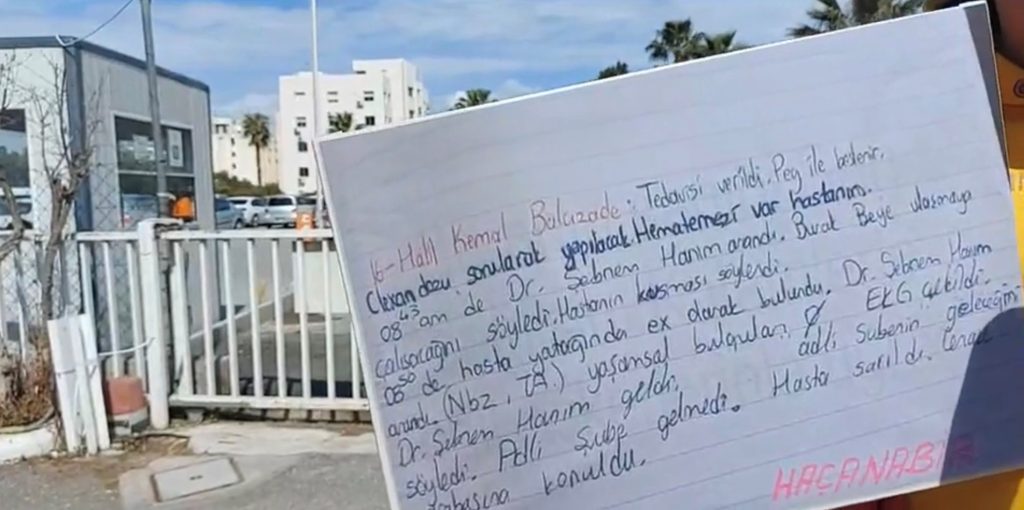 16-Halil Kemal Balcızade: Tedavisi verildi. Peg ile beslenir.
Clexan dozu sorularak yapılacak. Hematemezi var hastanın.
08⁴³ am de Dr. Şebnem Hanım arandı. Burak Beye ulaşmaya
çalışacağını söyledi. Hastanın kusması söylendi.
08⁵⁰ de hasta yatağında ex olarak bulundu. Dr. Şebnem Hanım
arandı. (Nbz, TA.) yaşamsal bulguları EKG çekildi.
Dr. Şebnem Hanım geldi. adli şubenin geleceğini
söyledi. Adli Şube gelmedi. Hasta sarıldı.
konuldu.
HAÇANABİR